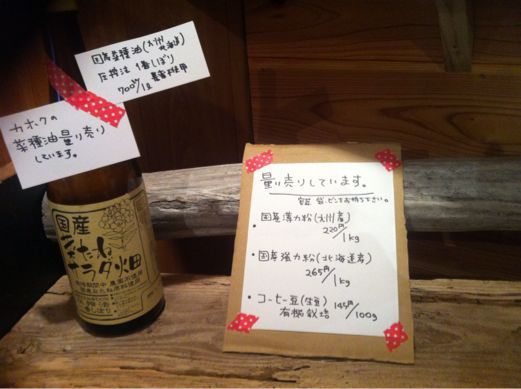 国産菜種油(九州 北海道)
圧搾法 1番しぼり
700円/1ℓ
カホクの
菜種油量り売り
しています。
国産
菜たね
サラダ畑
量り売りしています。
容器、袋、ビンをお持ち下さい。
・国産薄力粉(九州産)
220円/1kg
・国産強力粉(北海道産)
265円/1kg
・コーヒー豆(生豆)
有機栽培
145円/100g